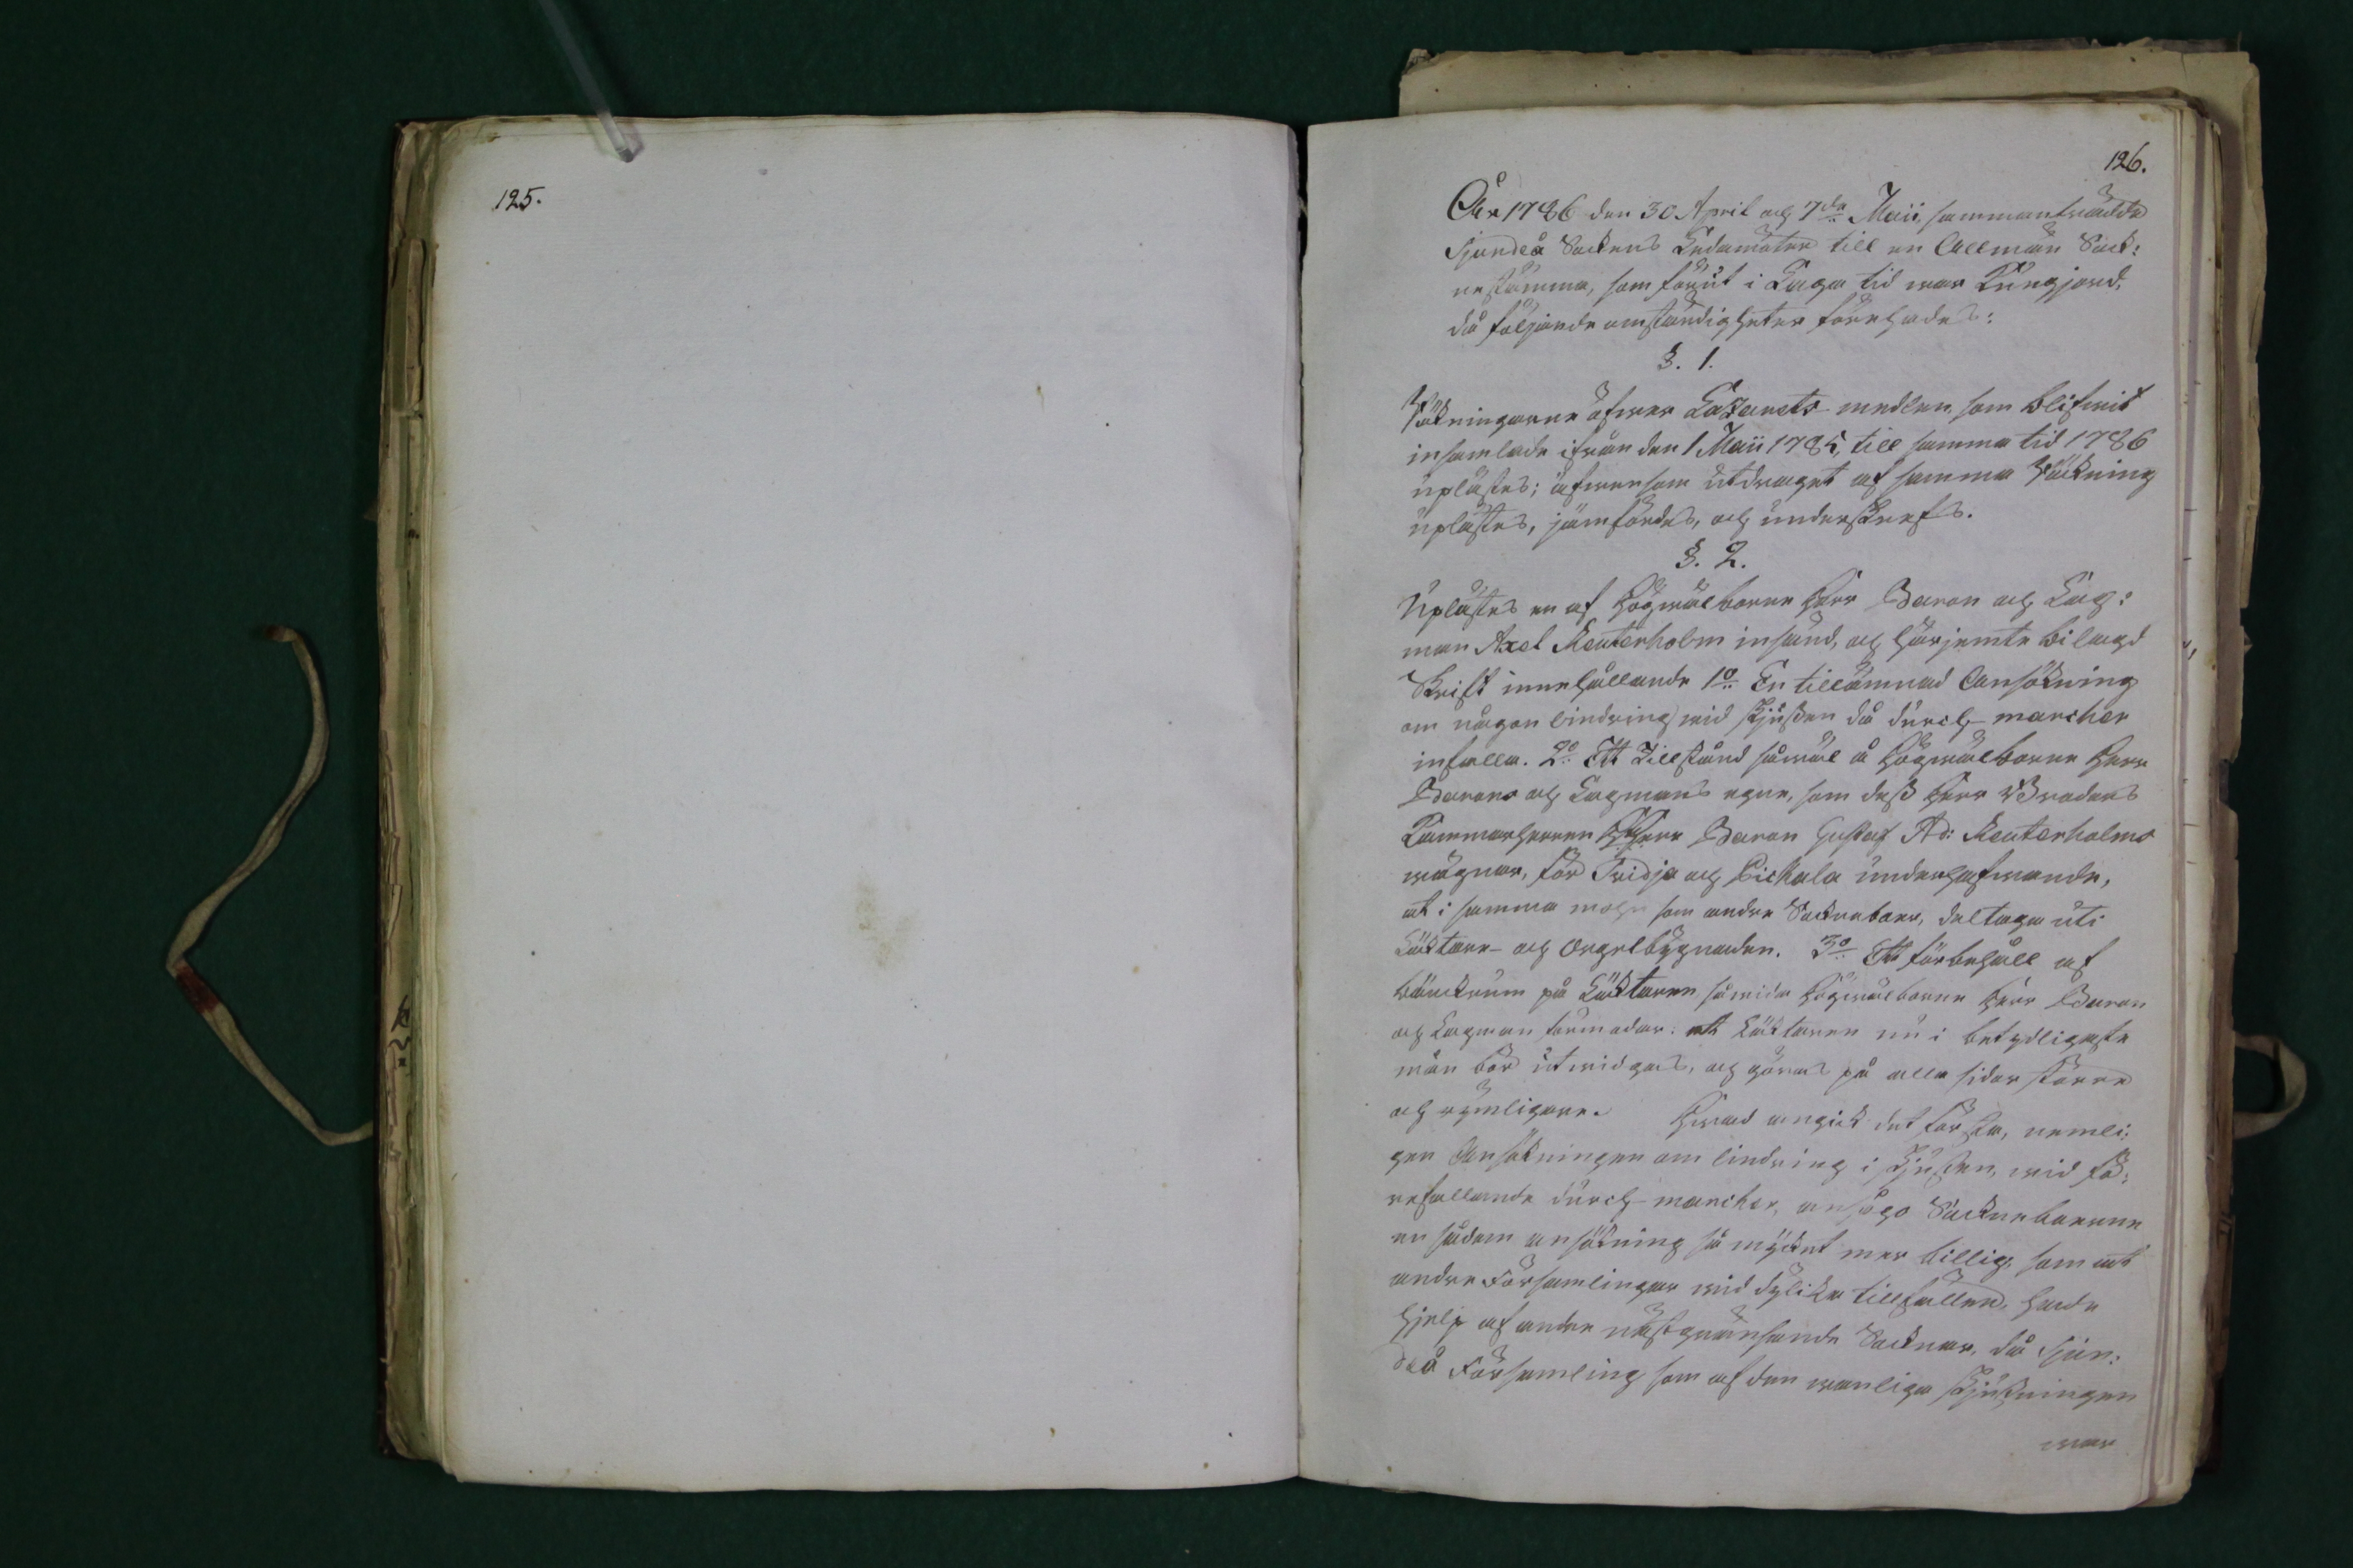 125.
126.
År 1786 den 30 April och 7de Maii, sammanträdde
Sjundeå Sockens Ledamöter till en Allmän Sock:
nestämma, som förut i Laga tid war Kungjord,
då följande omständigheter förehades:
§. 1.
Räkningarne öfwer Lazarets-medlen, som blifwit
insamlade ifrån den 1 Maii 1785, till samma tid 1786
uplästes; äfwensom utdraget af samma Räkning
uplästes, jämfördes, och underskrefs.
§. 2.
Uplästes en af Högwälborne Herr Baron och Lag:
man Axel Reuterholm insänd, och härjemte bilagd
Skrift innehållande 1o En tillämnad Ansökning
om någon lindring wid skjutsen då durch-marcher
infalla. 2o Ett Tillstånd såwäl å Högwälborne Herr
Barons och Lagmans egne, som dess Herr Broders
Kammarherren Herr Baron Gustaf Ad: Reuterholms
wägnar, för Svidja och Pickala underhafwande,
at i samma mohn som andre Sockneboer, deltaga uti
Läktare- och Orgelbygnaden. 3o Ett förbehåll af
bänckrum på Läktaren, såwida Högwälborne Herr Baron
och Lagman förmodar: att Läktaren nu i betydligaste
mån bör utwidgas, och göras på alla sidor större
och rymligare. Hwad angick det första, nemli:
gen Ansökningen om lindring i skjutsen, wid fö:
refallande durch-marcher, ansågo Socknebоerne
en sådan ansökning så mycket mer billig, som att
andre Församlingar wid dylika tillfällen, hade
hjelp af andre näst gränsande Socknar, då Sjun:
deå Församling som af den wanliga skjutsningen
war